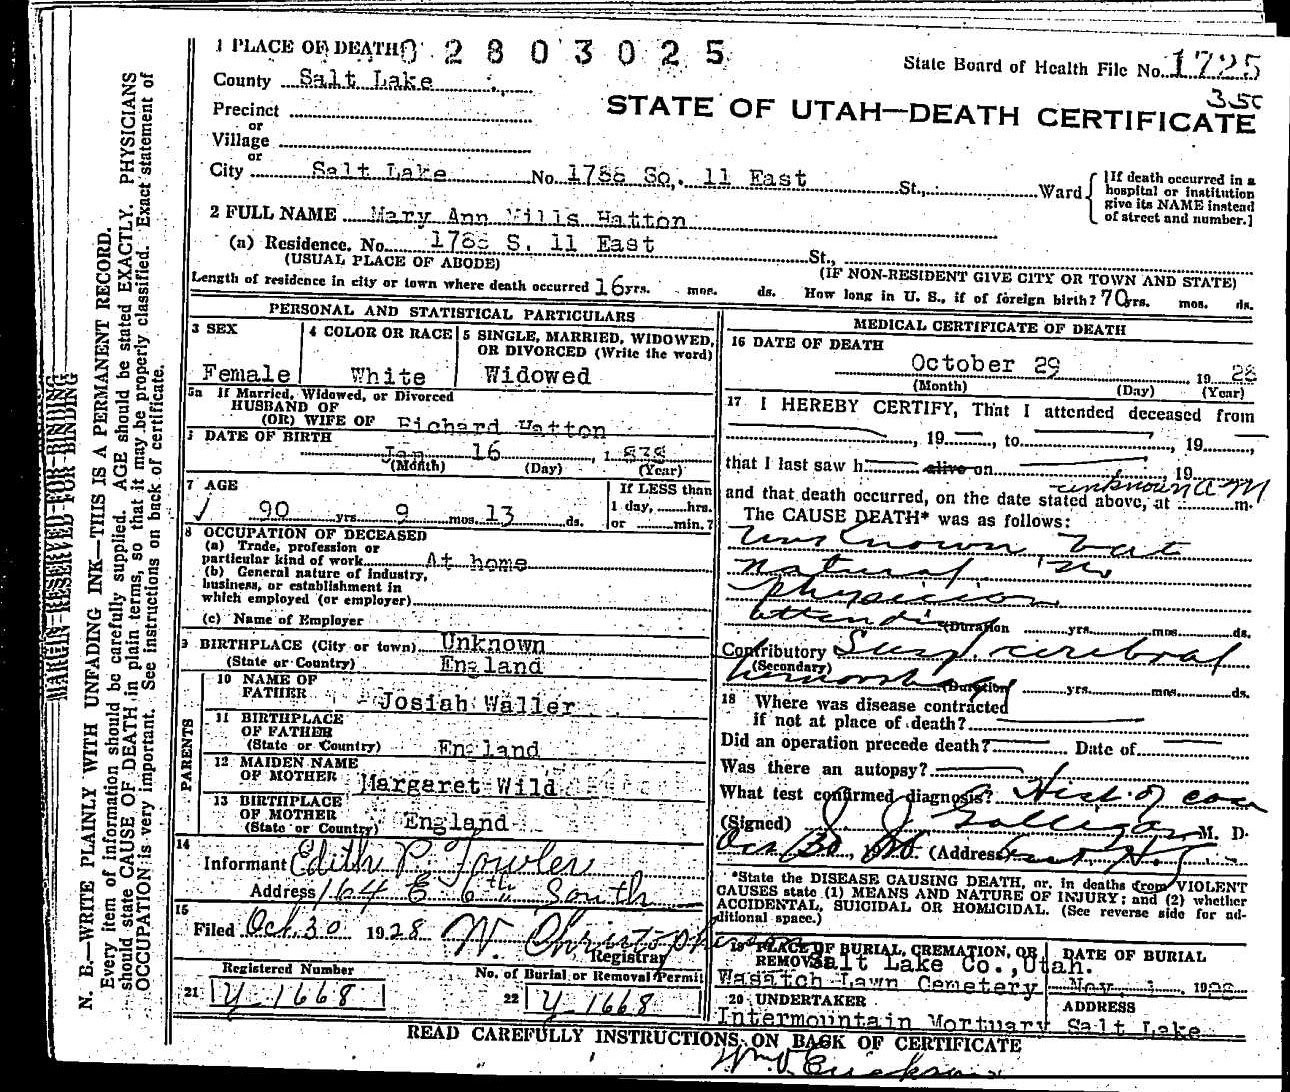 1 PLACE OF DEATH 0 2 8 0 3 0 2 5
State Board of Health File No. 1725
County Salt Lake
350
STATE OF UTAH—DEATH CERTIFICATE
Precinct
or
Village
or
City Salt Lake No. 1788 So. 11 East St., Ward
[If death occurred in a hospital or institution give its NAME instead of street and number.]
2 FULL NAME Mary Ann Wills Hatton
(a) Residence. No. 1788 S. 11 East St.,
(USUAL PLACE OF ABODE) (IF NON-RESIDENT GIVE CITY OR TOWN AND STATE)
Length of residence in city or town where death occurred 16 yrs. mos. ds. How long in U. S., if of foreign birth? 70 yrs. mos. ds.
PERSONAL AND STATISTICAL PARTICULARS
3 SEX 4 COLOR OR RACE 5 SINGLE, MARRIED, WIDOWED, OR DIVORCED (Write the word)
Female White Widowed
5a If Married, Widowed, or Divorced
HUSBAND OF
(OR) WIFE OF Richard Hatton
DATE OF BIRTH
Jan 16, 1838
(Month) (Day) (Year)
7 AGE If LESS than
90 yrs. 9 mos. 13 ds. 1 day, hrs.
or min.?
8 OCCUPATION OF DECEASED
(a) Trade, profession or
particular kind of work At home
(b) General nature of industry,
business, or establishment in
which employed (or employer)
(c) Name of Employer
9 BIRTHPLACE (City or town) Unknown
(State or Country) England
PARENTS
10 NAME OF
FATHER Josiah Waller
11 BIRTHPLACE
OF FATHER
(State or Country) England
12 MAIDEN NAME
OF MOTHER Margaret Wild
13 BIRTHPLACE
OF MOTHER
(State or Country) England
14
Informant Edith P. Fowler
Address 164 E 6th South
15
Filed Oct. 30 1928 W. Christopherson
Registrar
Registered Number No. of Burial or Removal Permit
21 Y-1668 22 Y-1668
MEDICAL CERTIFICATE OF DEATH
16 DATE OF DEATH
October 29 1928
(Month) (Day) (Year)
17 I HEREBY CERTIFY, That I attended deceased from
, 19 , to , 19
that I last saw h alive on , 19
unknown A M
and that death occurred, on the date stated above, at m.
The CAUSE DEATH* was as follows:
Unknown, but
natural. No
physician
attending (Duration yrs. mos. ds.
Contributory Susp. cerebral
(Secondary)
hemorrhage (Duration yrs. mos. ds.
18 Where was disease contracted
if not at place of death?
Did an operation precede death? Date of
Was there an autopsy?
What test confirmed diagnosis? Hist. of case
(Signed) J. J. Galligan M. D.
Oct 30, 19 (Address)
*State the DISEASE CAUSING DEATH, or, in deaths from VIOLENT
CAUSES state (1) MEANS AND NATURE OF INJURY; and (2) whether
ACCIDENTAL, SUICIDAL OR HOMICIDAL. (See reverse side for ad-
ditional space.)
19 PLACE OF BURIAL, CREMATION, OR REMOVAL DATE OF BURIAL
Salt Lake Co., Utah.
Wasatch Lawn Cemetery Nov 1 1928
20 UNDERTAKER ADDRESS
Intermountain Mortuary Salt Lake
READ CAREFULLY INSTRUCTIONS ON BACK OF CERTIFICATE
Wm. Erickson
MARGIN RESERVED FOR BINDING
N. B.—WRITE PLAINLY WITH UNFADING INK—THIS IS A PERMANENT RECORD.
Every item of information should be carefully supplied. AGE should be stated EXACTLY. PHYSICIANS
should state CAUSE OF DEATH in plain terms, so that it may be properly classified. Exact statement of
OCCUPATION is very important. See instructions on back of certificate.